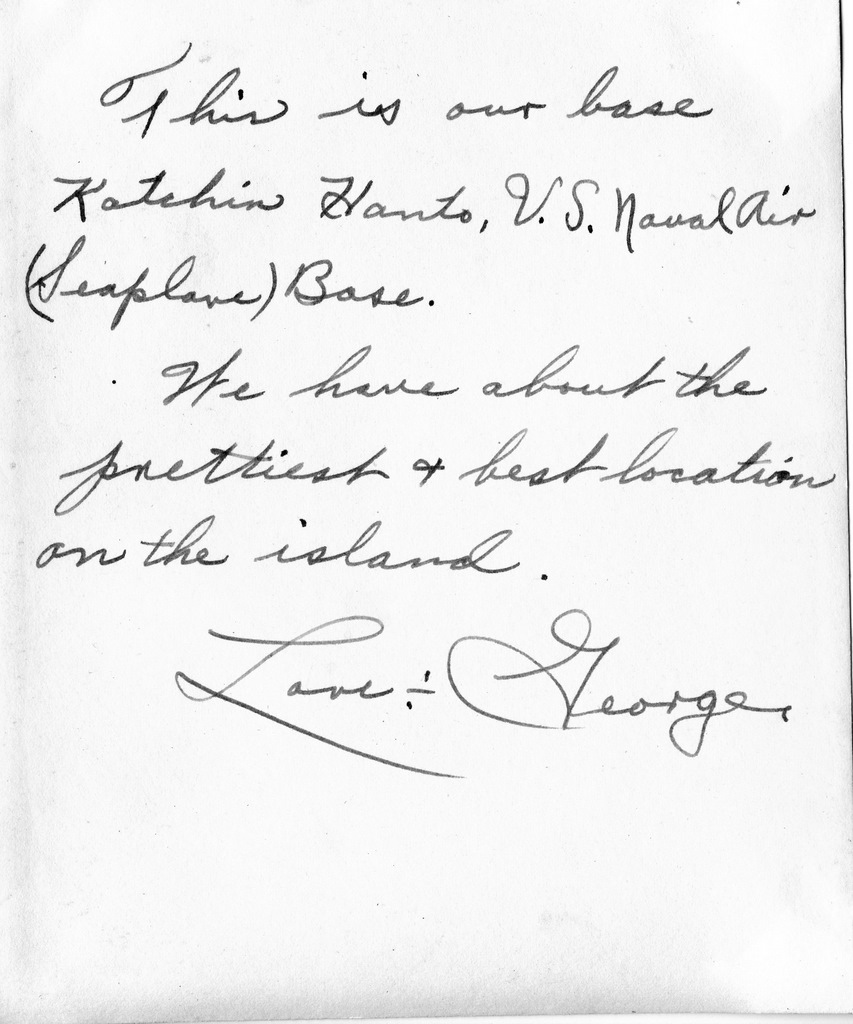 This is our base
Katchin Hanto, U.S. Naval Air
(Seaplane) Base.
We have about the
prettiest + best location
on the island.
Love :- George.